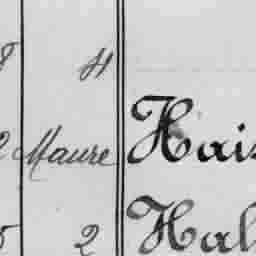 8 4
2 Maure Hais
5 2 Hal